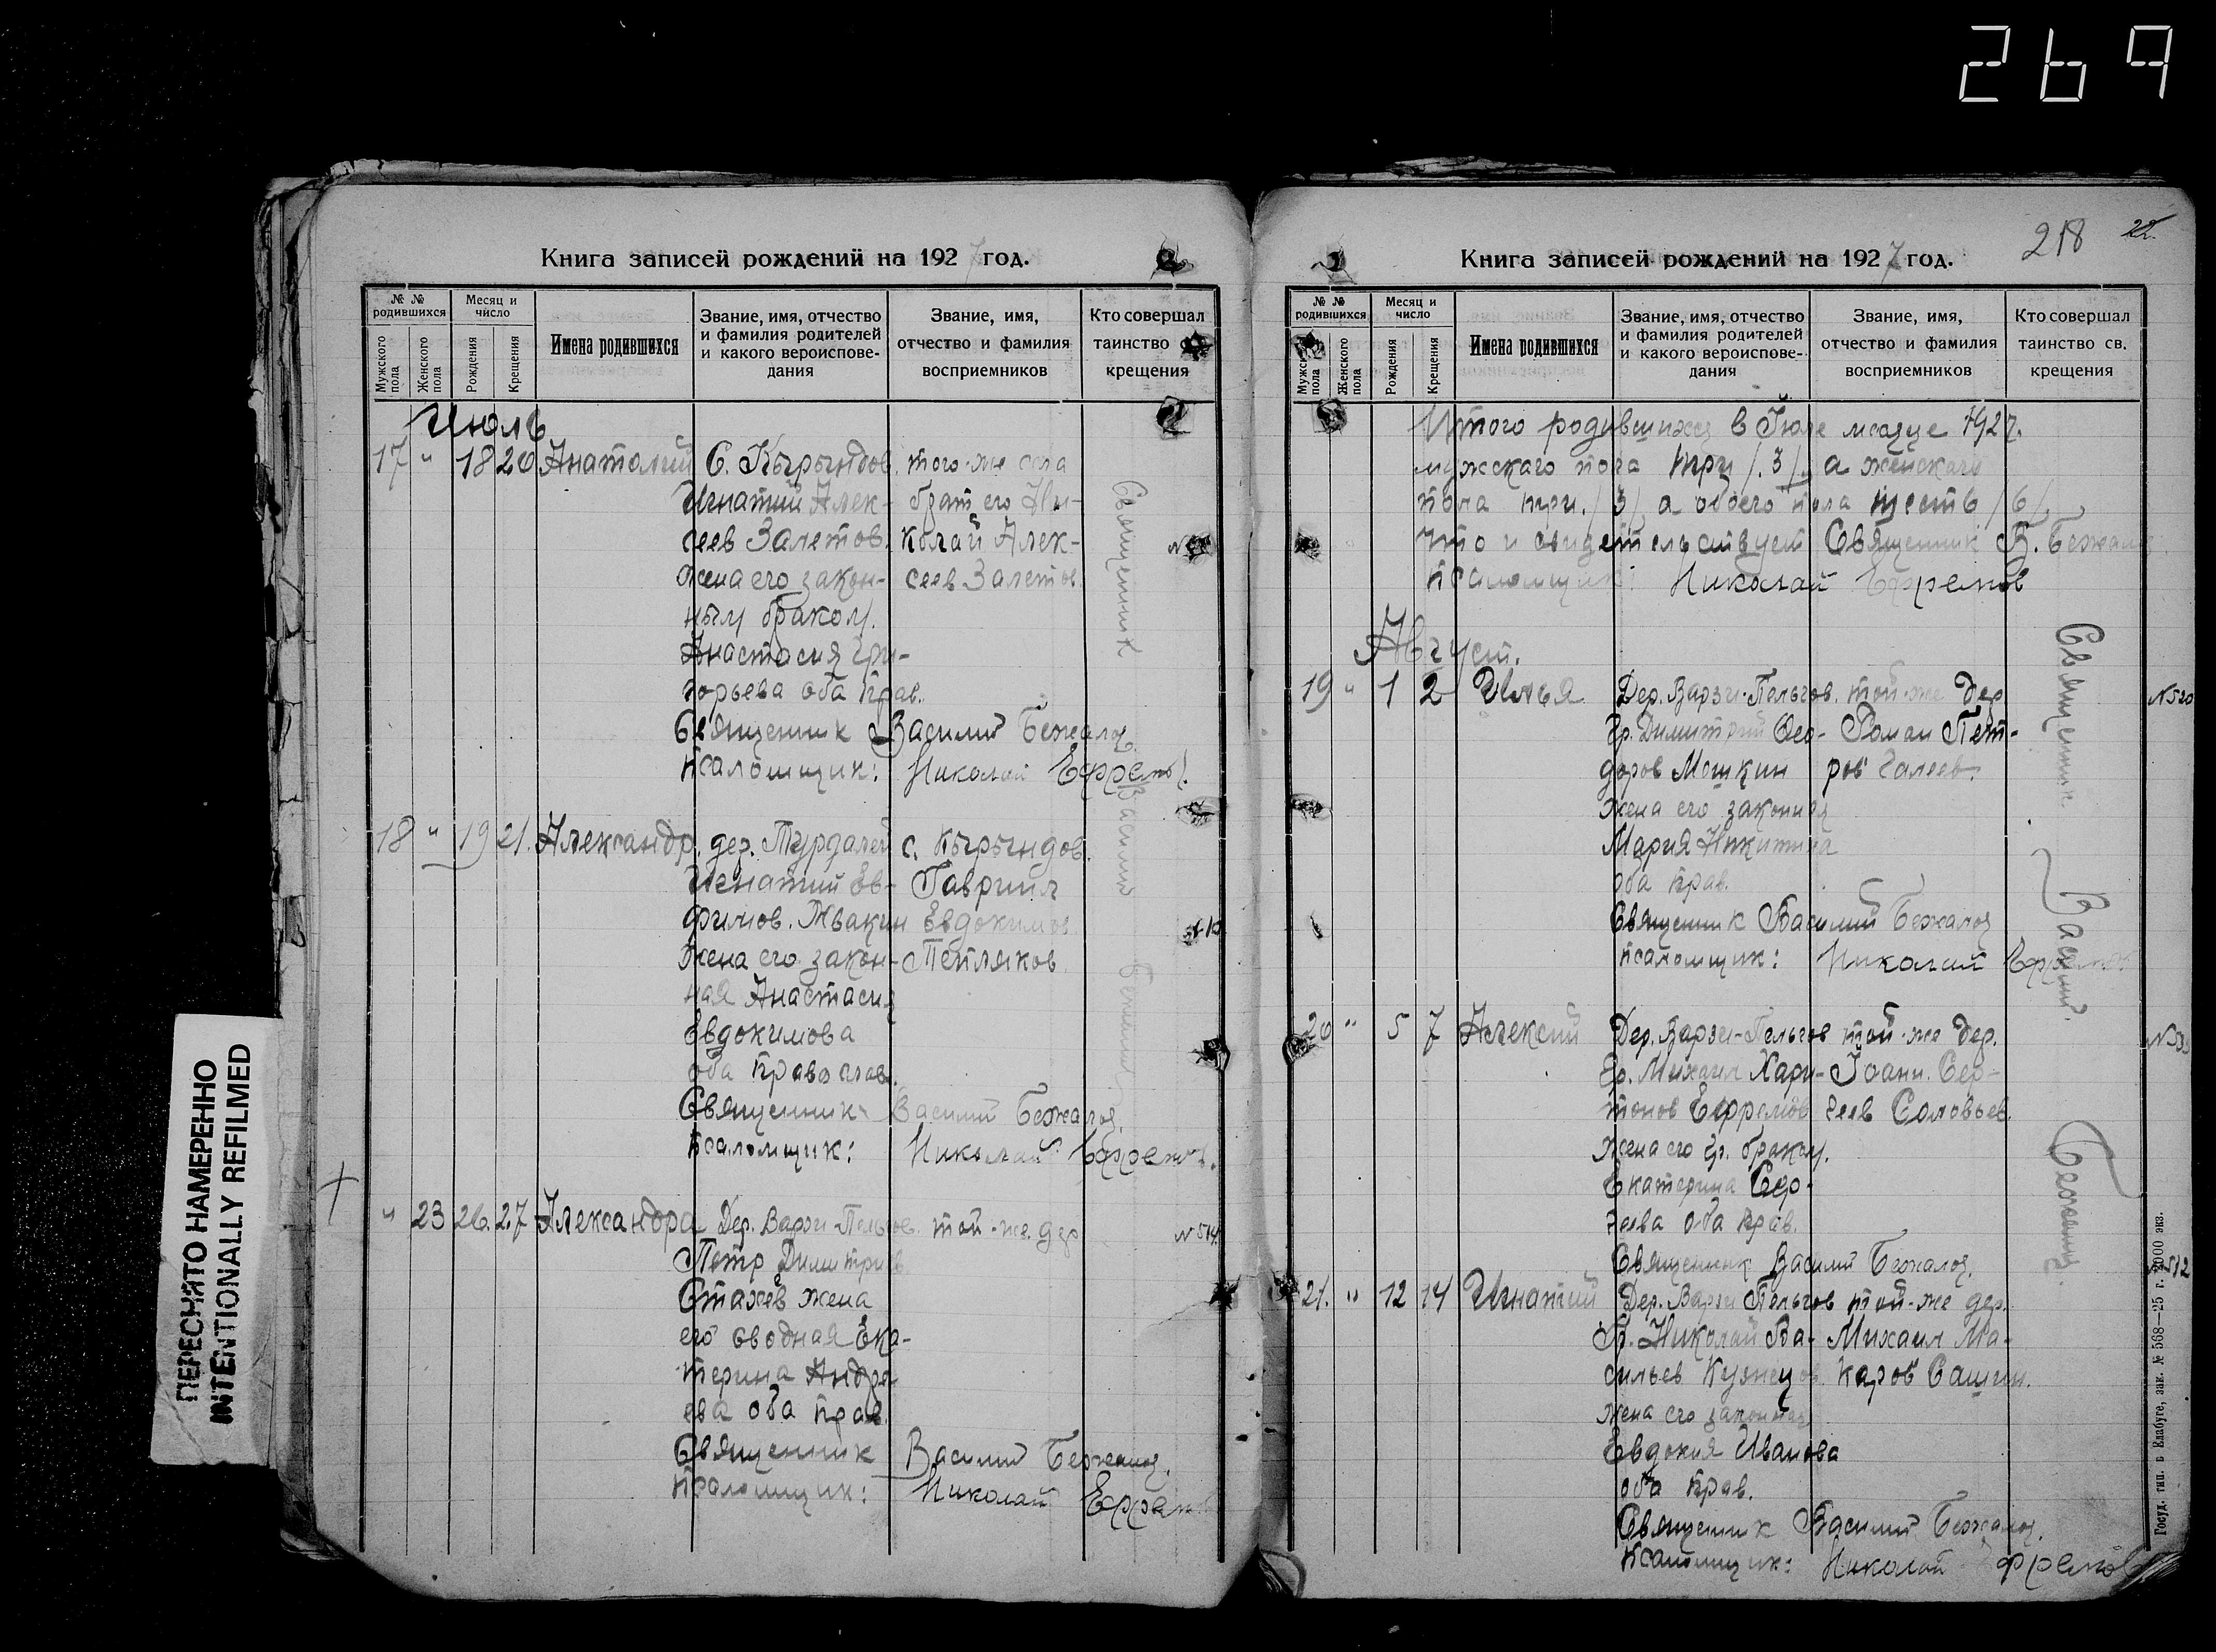 269
ПЕРЕСНЯТО НАМЕРЕННО
INTENTIONALLY REFILMED
Книга записей рождений на 1927 год.
№ № родившихся
Месяц и число
Мужского пола
Женского пола
Рождения
Крещения
Имена родившихся
Звание, имя, отчество и фамилия родителей и какого вероисповедания
Звание, имя, отчество и фамилия восприемников
Кто совершал таинство крещения
Июль
17 " 18 20 Анатолий С. Кырындов. того-же села
Игнатий Алек- брат его Ни-
сеев Залетов. колай Алек-
жена его закон- сеев Залетов
ным браком.
Анастасия Гри-
горьева оба прав.
Священник Василий Бежалов
Псаломщик: Николай Ефремов
18 " 19 21. Александр. дер. Турдалей с. Кырындов.
Игнатий Ев- Гавриил
фимов. Ивакин Евдокимов
жена его закон- Петляков
ная Анастасия
Евдокимова
оба православ.
Священник Василий Бежалов
Псаломщик: Николай Ефремов
" 23 26. 27 Александра Дер. Варзи-Пельгов. той-же дер № 514.
Петр Димитриев
Стахев жена
его сводная Ека-
терина Андре-
ева оба прав.
Священник Василий Бежалов
Псаломщик: Николай Ефремов
Священник Василий
218 22
Книга записей рождений на 1927 год.
№ № родившихся
Месяц и число
Мужского пола
Женского пола
Рождения
Крещения
Имена родившихся
Звание, имя, отчество и фамилия родителей и какого вероисповедания
Звание, имя, отчество и фамилия восприемников
Кто совершал таинство св. крещения
Итого родившихся в Июле месяце 1927.
мужского пола три /3/, а женского
пола три. /3/ а обоего пола шесть /6/,
что и свидетельствует Священник В. Бежалов
псаломщик: Николай Ефремов
Август.
19 " 1 2 Илья Дер. Варзи-Пельгов. той-же дер № 520
Гр. Димитрий Фео- Роман Пет-
доров Мошкин ров Галеев.
жена его законная
Мария Никитина
оба прав.
Священник Василий Бежалов
псаломщик: Николай Ефремов
20 " 5 7 Алексий Дер. Варзи-Пельгов той-же дер.
Гр. Михаил Хари- Иоанн. Сер-
тонов Ефремов геев Соловьев.
жена его гр. браком.
Екатерина
оба прав.
Священник Василий Бежалов.
21. " 12 14 Игнатий Дер. Варзи Пельгов той-же дер.
Гр. Николай Ва- Михаил Ма-
сильев Кузнецов каров Сашин.
жена его законная
Евдокия Иванова
оба прав.
Священник Василий Бежалов.
Псаломщик: Николай Ефремов
Священник Василий Бежалов
Госуд. тип. в Елабуге, зак. № 568—25 г. 2000 экз.